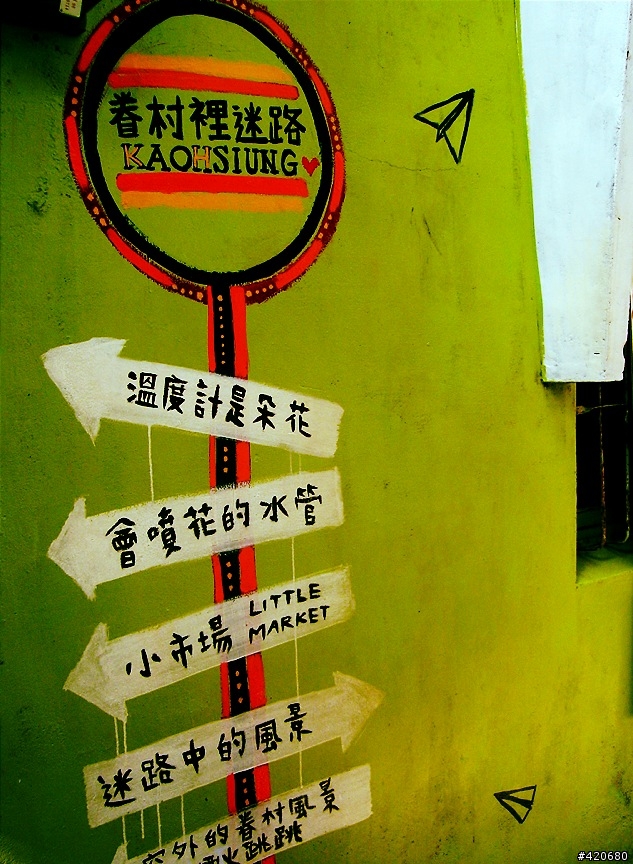 眷村裡迷路
KAOHSIUNG
溫度計是朵花
會噴花的水管
小市場 LITTLE
MARKET
迷路中的風景
窗外的眷村風景
跳跳
#420680